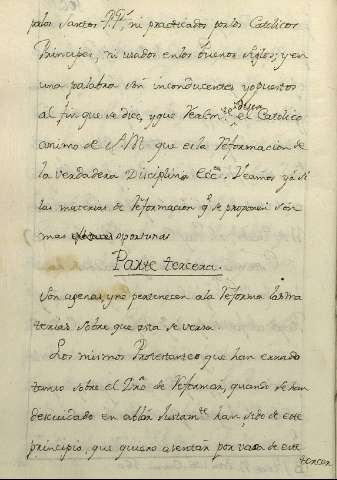 por los Santos PP., ni practicados por los Catolicos
Principes, ni usados en los buenos siglos; y en
una palabra son inconducentes, y opuestos
al fin que se dice, y que realm.te desea el Catolico
animo de S.M. que es la reformacion de
la verdadera Disciplina Ecca. Veamos ya si
las materias de reformacion q.e se proponen son
mas oportunas
Parte tercera.
Son agenas, y no pertenecen a la reforma las ma
terias sobre que esta se versa
Los mismos Protestantes que han errado
tanto sobre el Dro de reformar, quando se han
descuidado en ablar justam.te han sido de este
principio, que quiero asentar por vasa de este
tercer